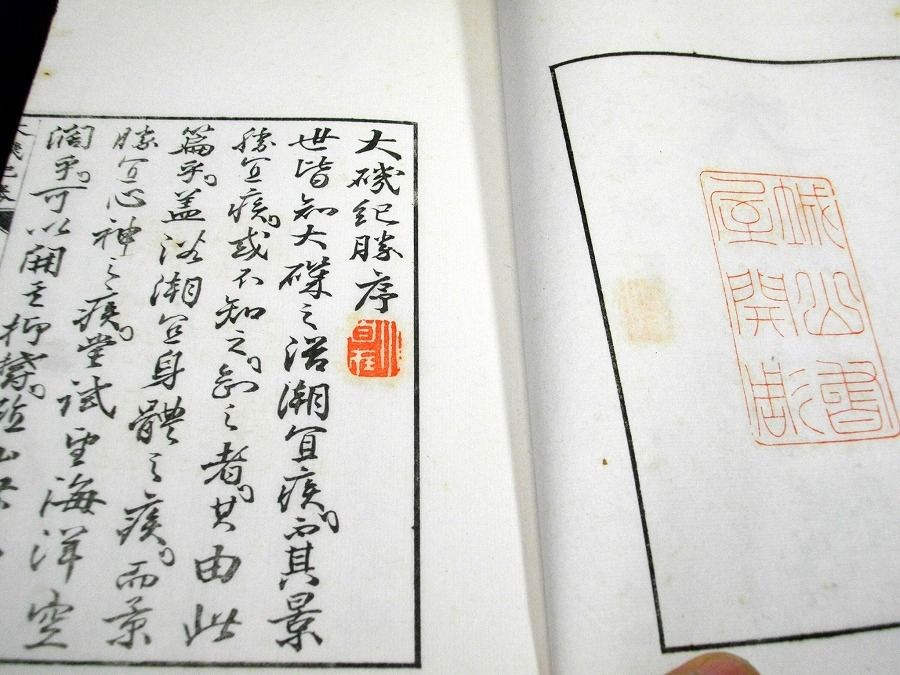 城山書
屋開彫
大磯紀勝序
自在
世皆知大磯之浴潮宜疾。而其景
勝宜疾。或不知之。知之者。其由此
篇乎。蓋浴潮宜身體之疾。而景
勝宜心神之疾。嘗試望海洋空
濶乎。可以開其抑鬱。